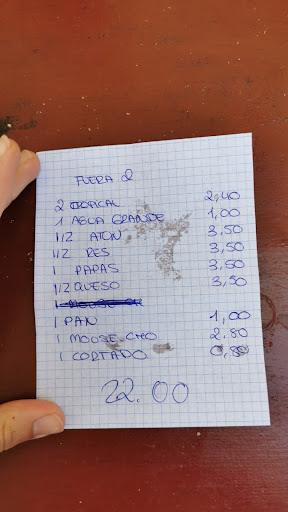 FUERA 2
2 TROPICAL 2,40
1 AGUA GRANDE 1,00
1/2 ATUN 3,50
1/2 RES 3,50
1 PAPAS 3,50
1/2 QUESO 3,50
1 PAN 1,00
1 MOOSE CHO 2,80
1 CORTADO 0,80
22.00